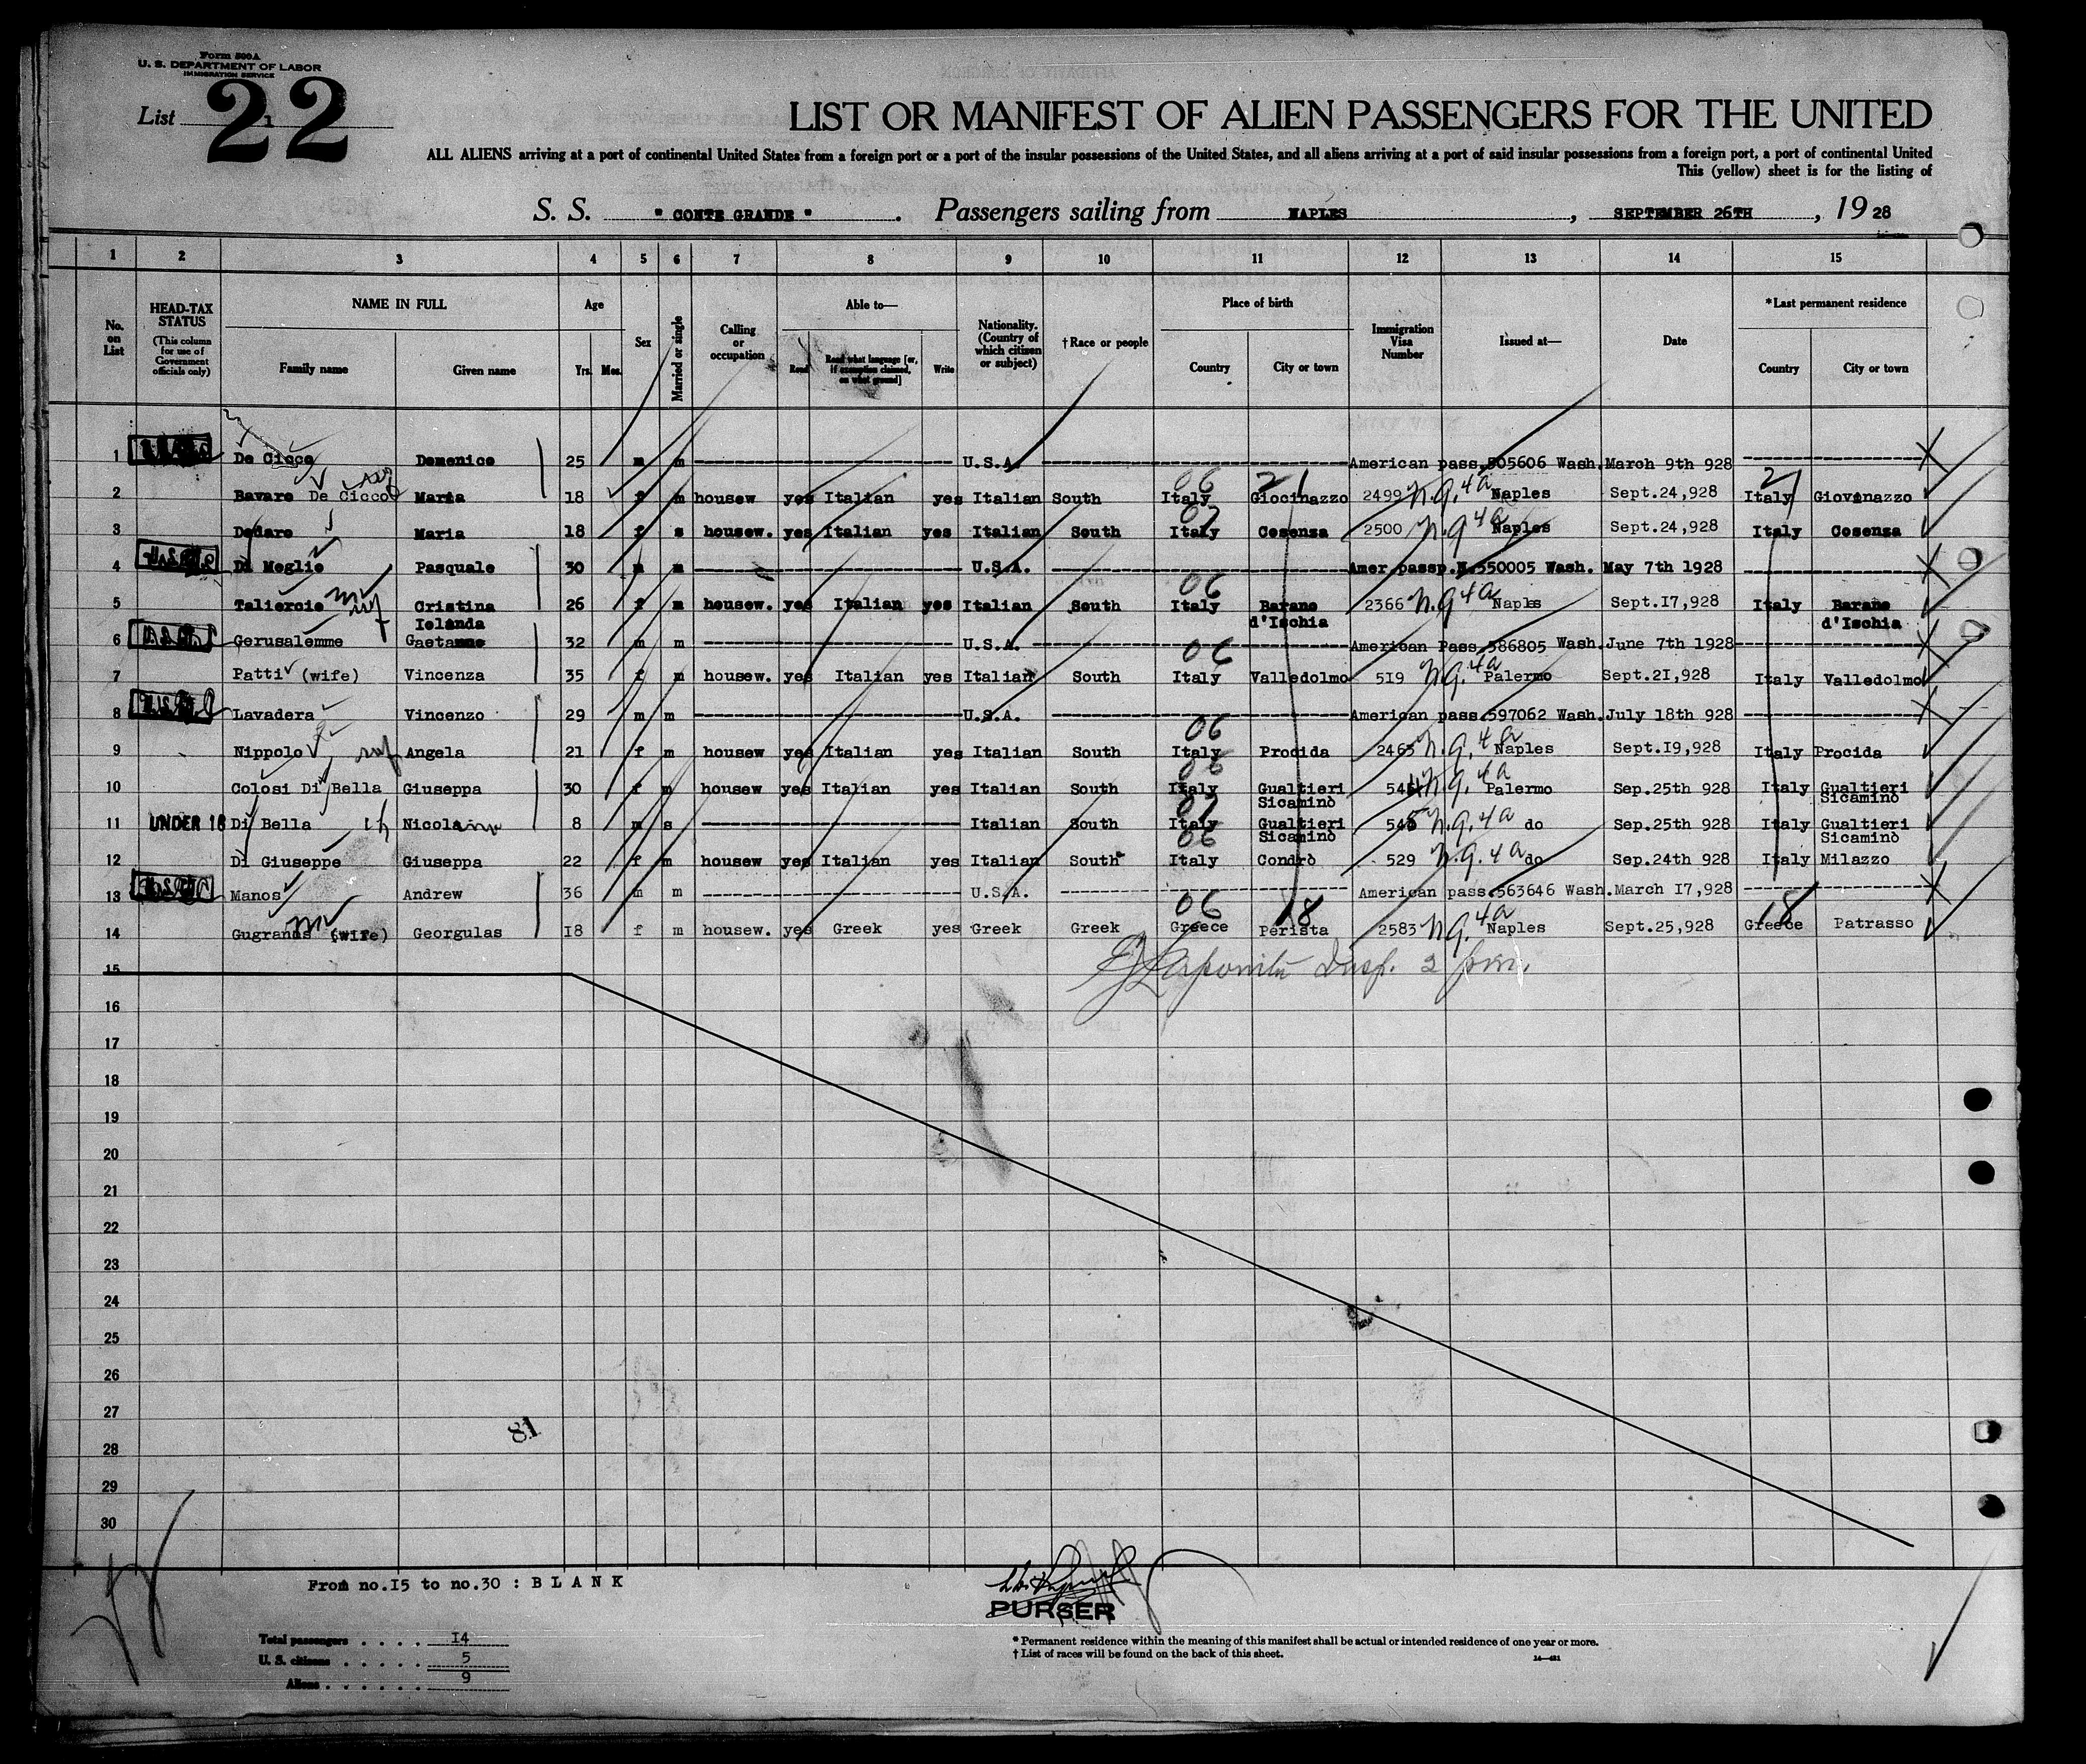 Form 500A
U. S. DEPARTMENT OF LABOR
IMMIGRATION SERVICE
List 22
LIST OR MANIFEST OF ALIEN PASSENGERS FOR THE UNITED
ALL ALIENS arriving at a port of continental United States from a foreign port or a port of the insular possessions of the United States, and all aliens arriving at a port of said insular possessions from a foreign port, a port of continental United
This (yellow) sheet is for the listing of
S. S. " CONTE GRANDE " . Passengers sailing from NAPLES , SEPTEMBER 26TH , 19 28
1 2 3 4 5 6 7 8 9 10 11 12 13 14 15
No. on List
HEAD-TAX STATUS (This column for use of Government officials only)
NAME IN FULL
Family name Given name
Age
Yrs. Mos.
Sex
Married or single
Calling or occupation
Able to—
Read Read what language [or, if exemption claimed, on what ground] Write
Nationality. (Country of which citizen or subject)
†Race or people
Place of birth
Country City or town
Immigration Visa Number
Issued at—
Date
*Last permanent residence
Country City or town
1 De Cicco Domenico 25 m m U.S.A. American pass.505606 Wash. March 9th 928
2 Bavaro De Cicco Maria 18 f m housew yes Italian yes Italian South 06 Italy 21 Giocinazzo 2499 n.q.4a Naples Sept.24,928 21 Italy Giovinazzo
3 Dedaro Maria 18 f s housew. yes Italian yes Italian South 07 Italy Cosenza 2500 n.q.4a Naples Sept.24,928 Italy Cosenza
4 Di Meglio Pasquale 30 m m U.S.A. Amer.passp.N.550005 Wash. May 7th 1928
5 Taliercio Cristina Iolanda 26 f m housew. yes Italian yes Italian South 06 Italy Barano d'Ischia 2366 n.q.4a Naples Sept.17,928 Italy Barano d'Ischia
6 Gerusalemme Gaetano 32 m m U.S.A. American Pass.586805 Wash. June 7th 1928
7 Patti (wife) Vincenza 35 f m housew. yes Italian yes Italian South 06 Italy Valledolmo 519 n.q.4a Palermo Sept.21,928 Italy Valledolmo
8 Lavadera Vincenzo 29 m m U.S.A. American pass.597062 Wash. July 18th 928
9 Nippolo Angela 21 f m housew yes Italian yes Italian South 06 Italy Procida 2465 n.q.4a Naples Sept.19,928 Italy Procida
10 Colosi Di Bella Giuseppa 30 f m housew yes Italian yes Italian South 06 Italy Gualtieri Sicaminò n.q.4a Palermo Sep.25th 928 Italy Gualtieri Sicaminò
11 UNDER 16 Di Bella Nicola 8 m s Italian South 07 Italy Gualtieri Sicaminò n.q.4a do Sep.25th 928 Italy Gualtieri Sicaminò
12 Di Giuseppe Giuseppa 22 f m housew yes Italian yes Italian South 06 Italy Condrò 529 n.q.4a do Sep.24th 928 Italy Milazzo
13 Manos Andrew 36 m m U.S.A. American pass.563646 Wash. March 17,928
14 Gugranas (wife) Georgulas 18 f m housew. yes Greek yes Greek Greek 06 Greece 18 Perista 2583 n.q.4a Naples Sept.25,928 18 Greece Patrasso
15
16
17
18
19
20
21
22
23
24
25
26
27
81
28
29
30
From no.15 to no.30 : B L A N K
PURSER
Total passengers . . . . 14
U. S. citizens . . . . . 5
Aliens . . . . . . 9
* Permanent residence within the meaning of this manifest shall be actual or intended residence of one year or more.
† List of races will be found on the back of this sheet.